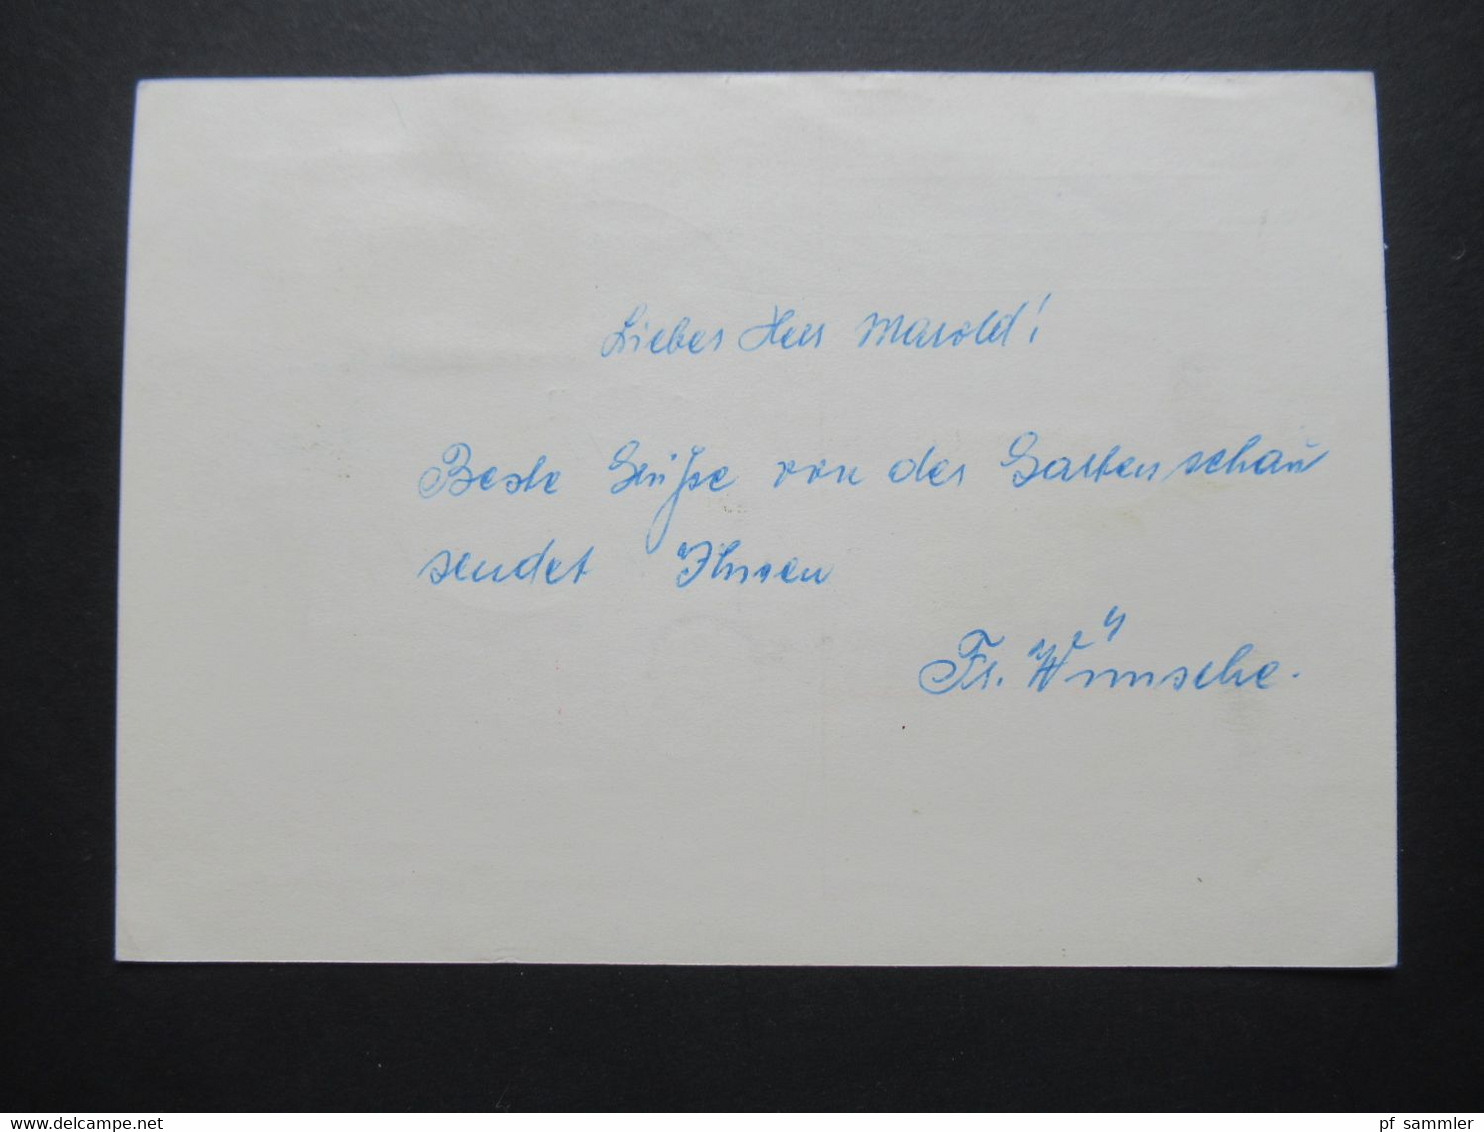 Lieber Herr Marold!
Beste Grüße von der Gartenschau
sendet Ihnen
Fr. Wünsche.
pf sammler